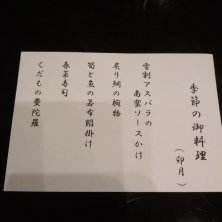 季節の御料理
（卯月）
雪割アスパラの
南蛮ソースかけ
炙り鯛の椀物
筍と魚の若布餡掛け
春菜寿司
くだもの曼陀羅